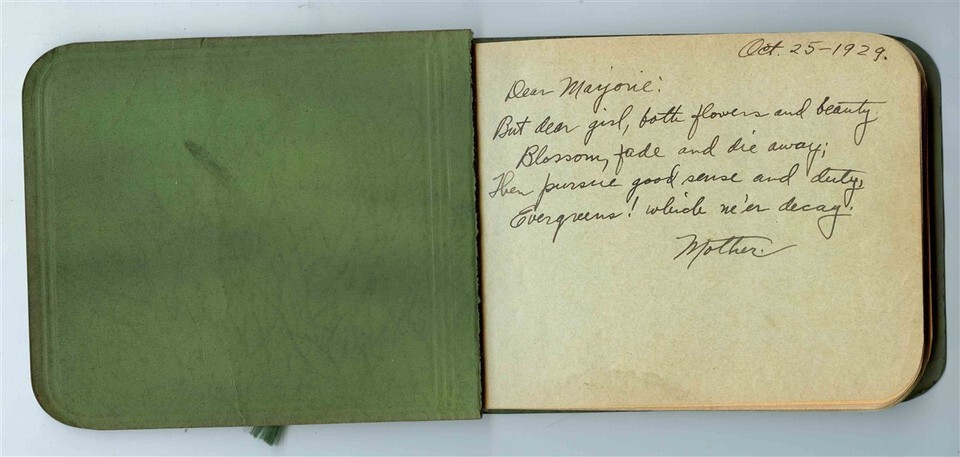 Oct. 25-1929.
Dear Marjorie:
But dear girl, both flowers and beauty
Blossom, fade and die away;
Then pursue good sense and duty,
Evergreens! which ne'er decay.
Mother.